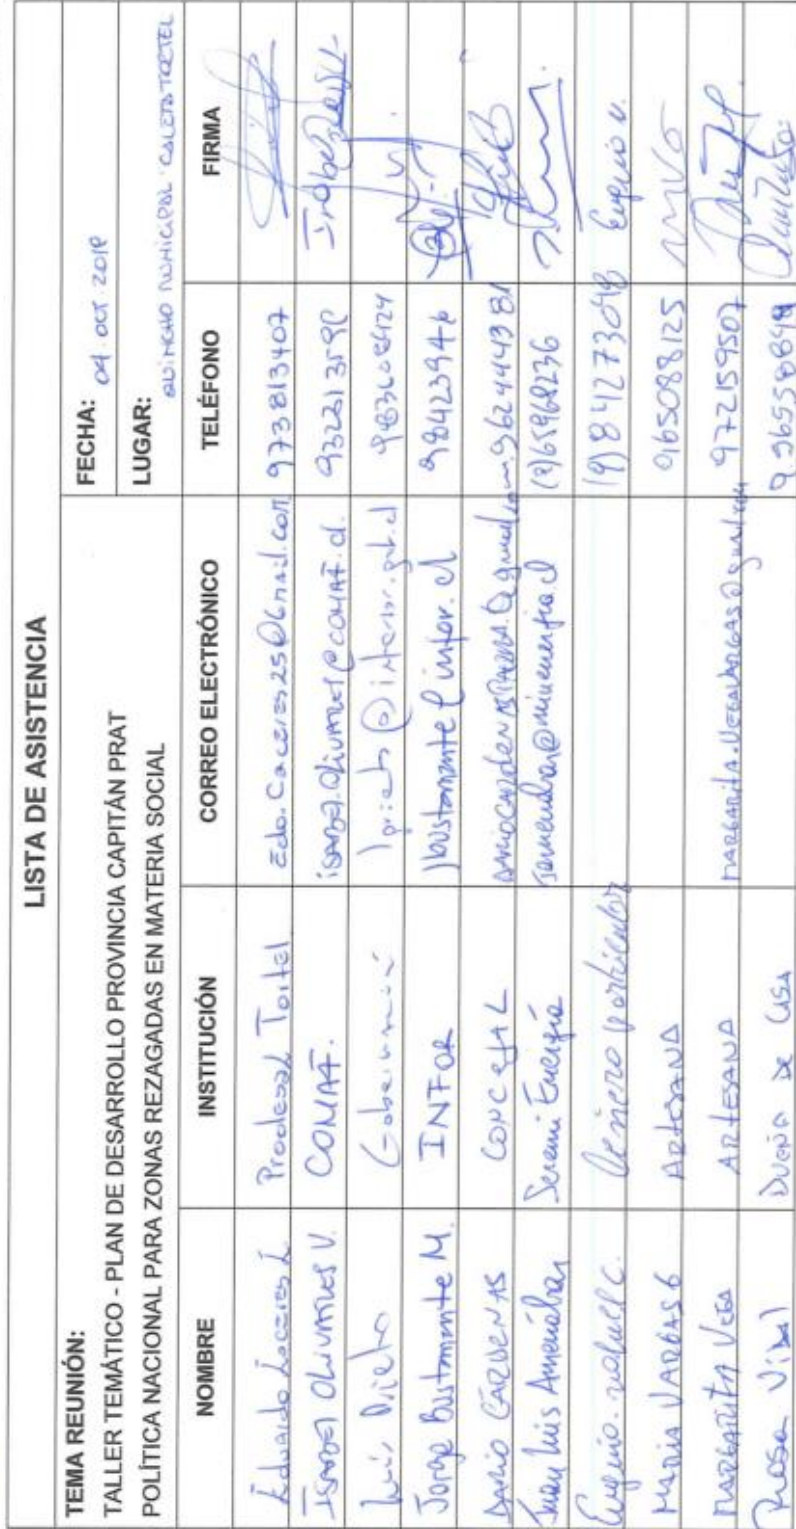 LISTA DE ASISTENCIA
TEMA REUNIÓN:
TALLER TEMÁTICO - PLAN DE DESARROLLO PROVINCIA CAPITÁN PRAT
POLÍTICA NACIONAL PARA ZONAS REZAGADAS EN MATERIA SOCIAL
FECHA: 04 OCT 2018
LUGAR: MUNICIPAL CALETA TORTEL
NOMBRE INSTITUCIÓN CORREO ELECTRÓNICO TELÉFONO FIRMA
Eduardo Caceres L Prodesal Tortel Edo.Caceres25@Gmail.com 973813407
ISABEL OLIVARES V. CONAF. isabel.olivares@CONAF.cl.
Luis Prieto lprieto@interior.gob.cl
Jorge Bustamante M. INFOR jbustamante@infor.cl 98423946
DARIO CÁRDENAS CONCEJAL 962444381
Juan Luis Amenábar Seremi Energía jamenabar@minenergia.cl (9)65968236
Eugenio C. particular (9)84273048 Eugenio
MARIA VARGAS G ARTESANA 965088125
MARGARITA VEGA ARTESANA 972159507
Rosa Vidal DUEÑA DE CASA